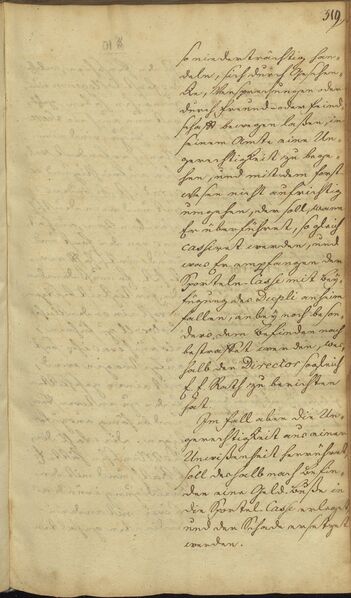 319
so niederträchtig han-
deln, sich durch Geschen-
ke, Versprechungen oder
durch Freund- oder Feind-
schafft bewegen laßen, in
seinem Amte eine Un-
gerechtigkeit zu bege-
hen, und mit dem Forst-
wesen nicht aufrichtig
umgehen, der soll, wann
Er überführet, sogleich
cassiret werden, und
was Er empfangen der
Sporteln-Casse mit Bey-
fügung des Dupli anheim
fallen, anbey noch beson-
ders dem Befinden nach
bestraffet werden, wes-
halb der Director sogleich
E. E. Rath zu berichten
hat.
Im Fall aber die Un-
gerechtigkeit aus einer
Unwißenheit herrühret,
soll deshalb nach Befin-
den eine Geld-Buße in
die Sportel-Casse erleget
und der Schade ersetzet
werden.